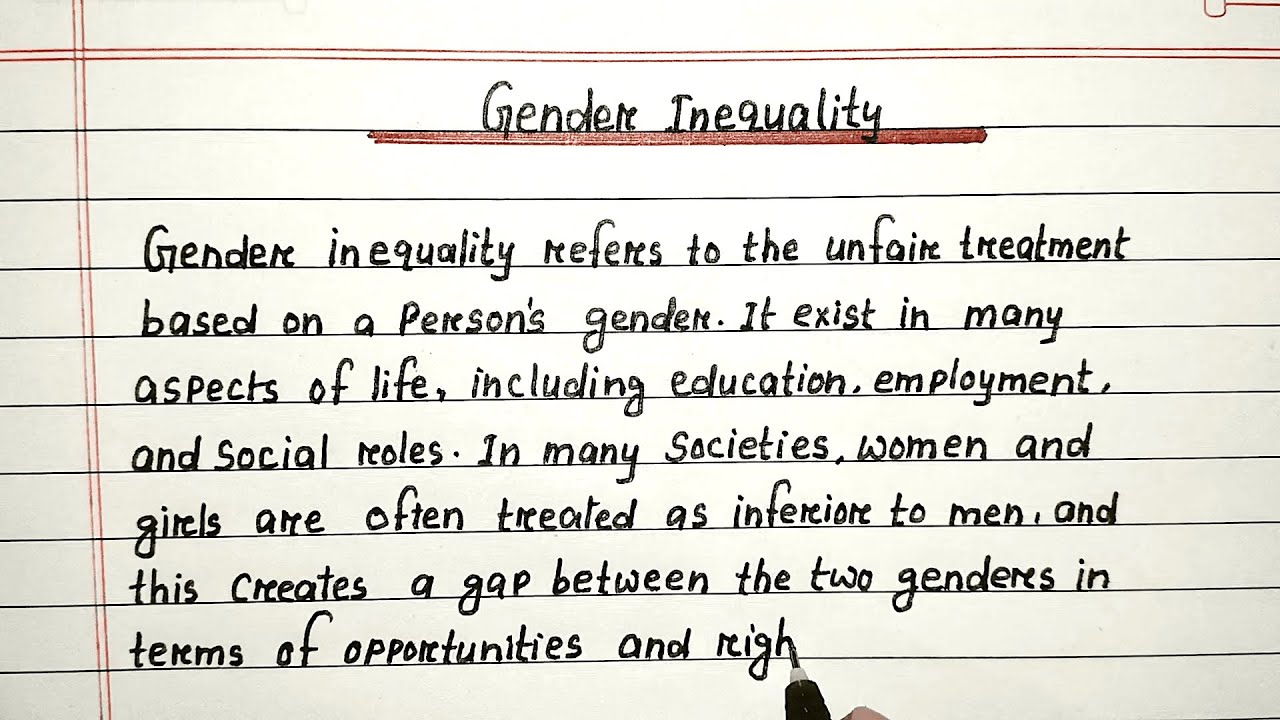 Gender Inequality
Gender inequality refers to the unfair treatment
based on a Person's gender. It exist in many
aspects of life, including education, employment,
and Social roles. In many Societies, women and
girls are often treated as inferior to men, and
this Creates a gap between the two genders in
terms of opportunities and righ